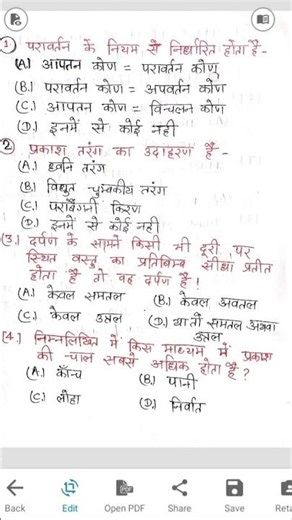 1) परावर्तन के नियम से निर्धारित होता है-
(A.) आपतन कोण = परावर्तन कोण
(B.) परावर्तन कोण = अपवर्तन कोण
(C.) आपतन कोण = विचलन कोण
(D.) इनमें से कोई नही
2) प्रकाश तरंग का उदाहरण है -
(A.) ध्वनि तरंग
(B.) विद्युत चुम्बकीय तरंग
(C.) पराबैंगनी किरण
(D.) इनमें से कोई नही
(3.) दर्पण के सामने किसी भी दूरी पर
स्थित वस्तु का प्रतिबिम्ब सीधा प्रतीत
होता है तो वह दर्पण है!
(A.) केवल समतल (B.) केवल अवतल
(C.) केवल उत्तल (D.) या तो समतल अथवा
उत्तल
[4.] निम्नलिखित में किस माध्यम में प्रकाश
की चाल सबसे अधिक होता है?
(A.) काँच (B.) पानी
(C.) लोहा (D.) निर्वात
Back Edit Open PDF Share Save Reta